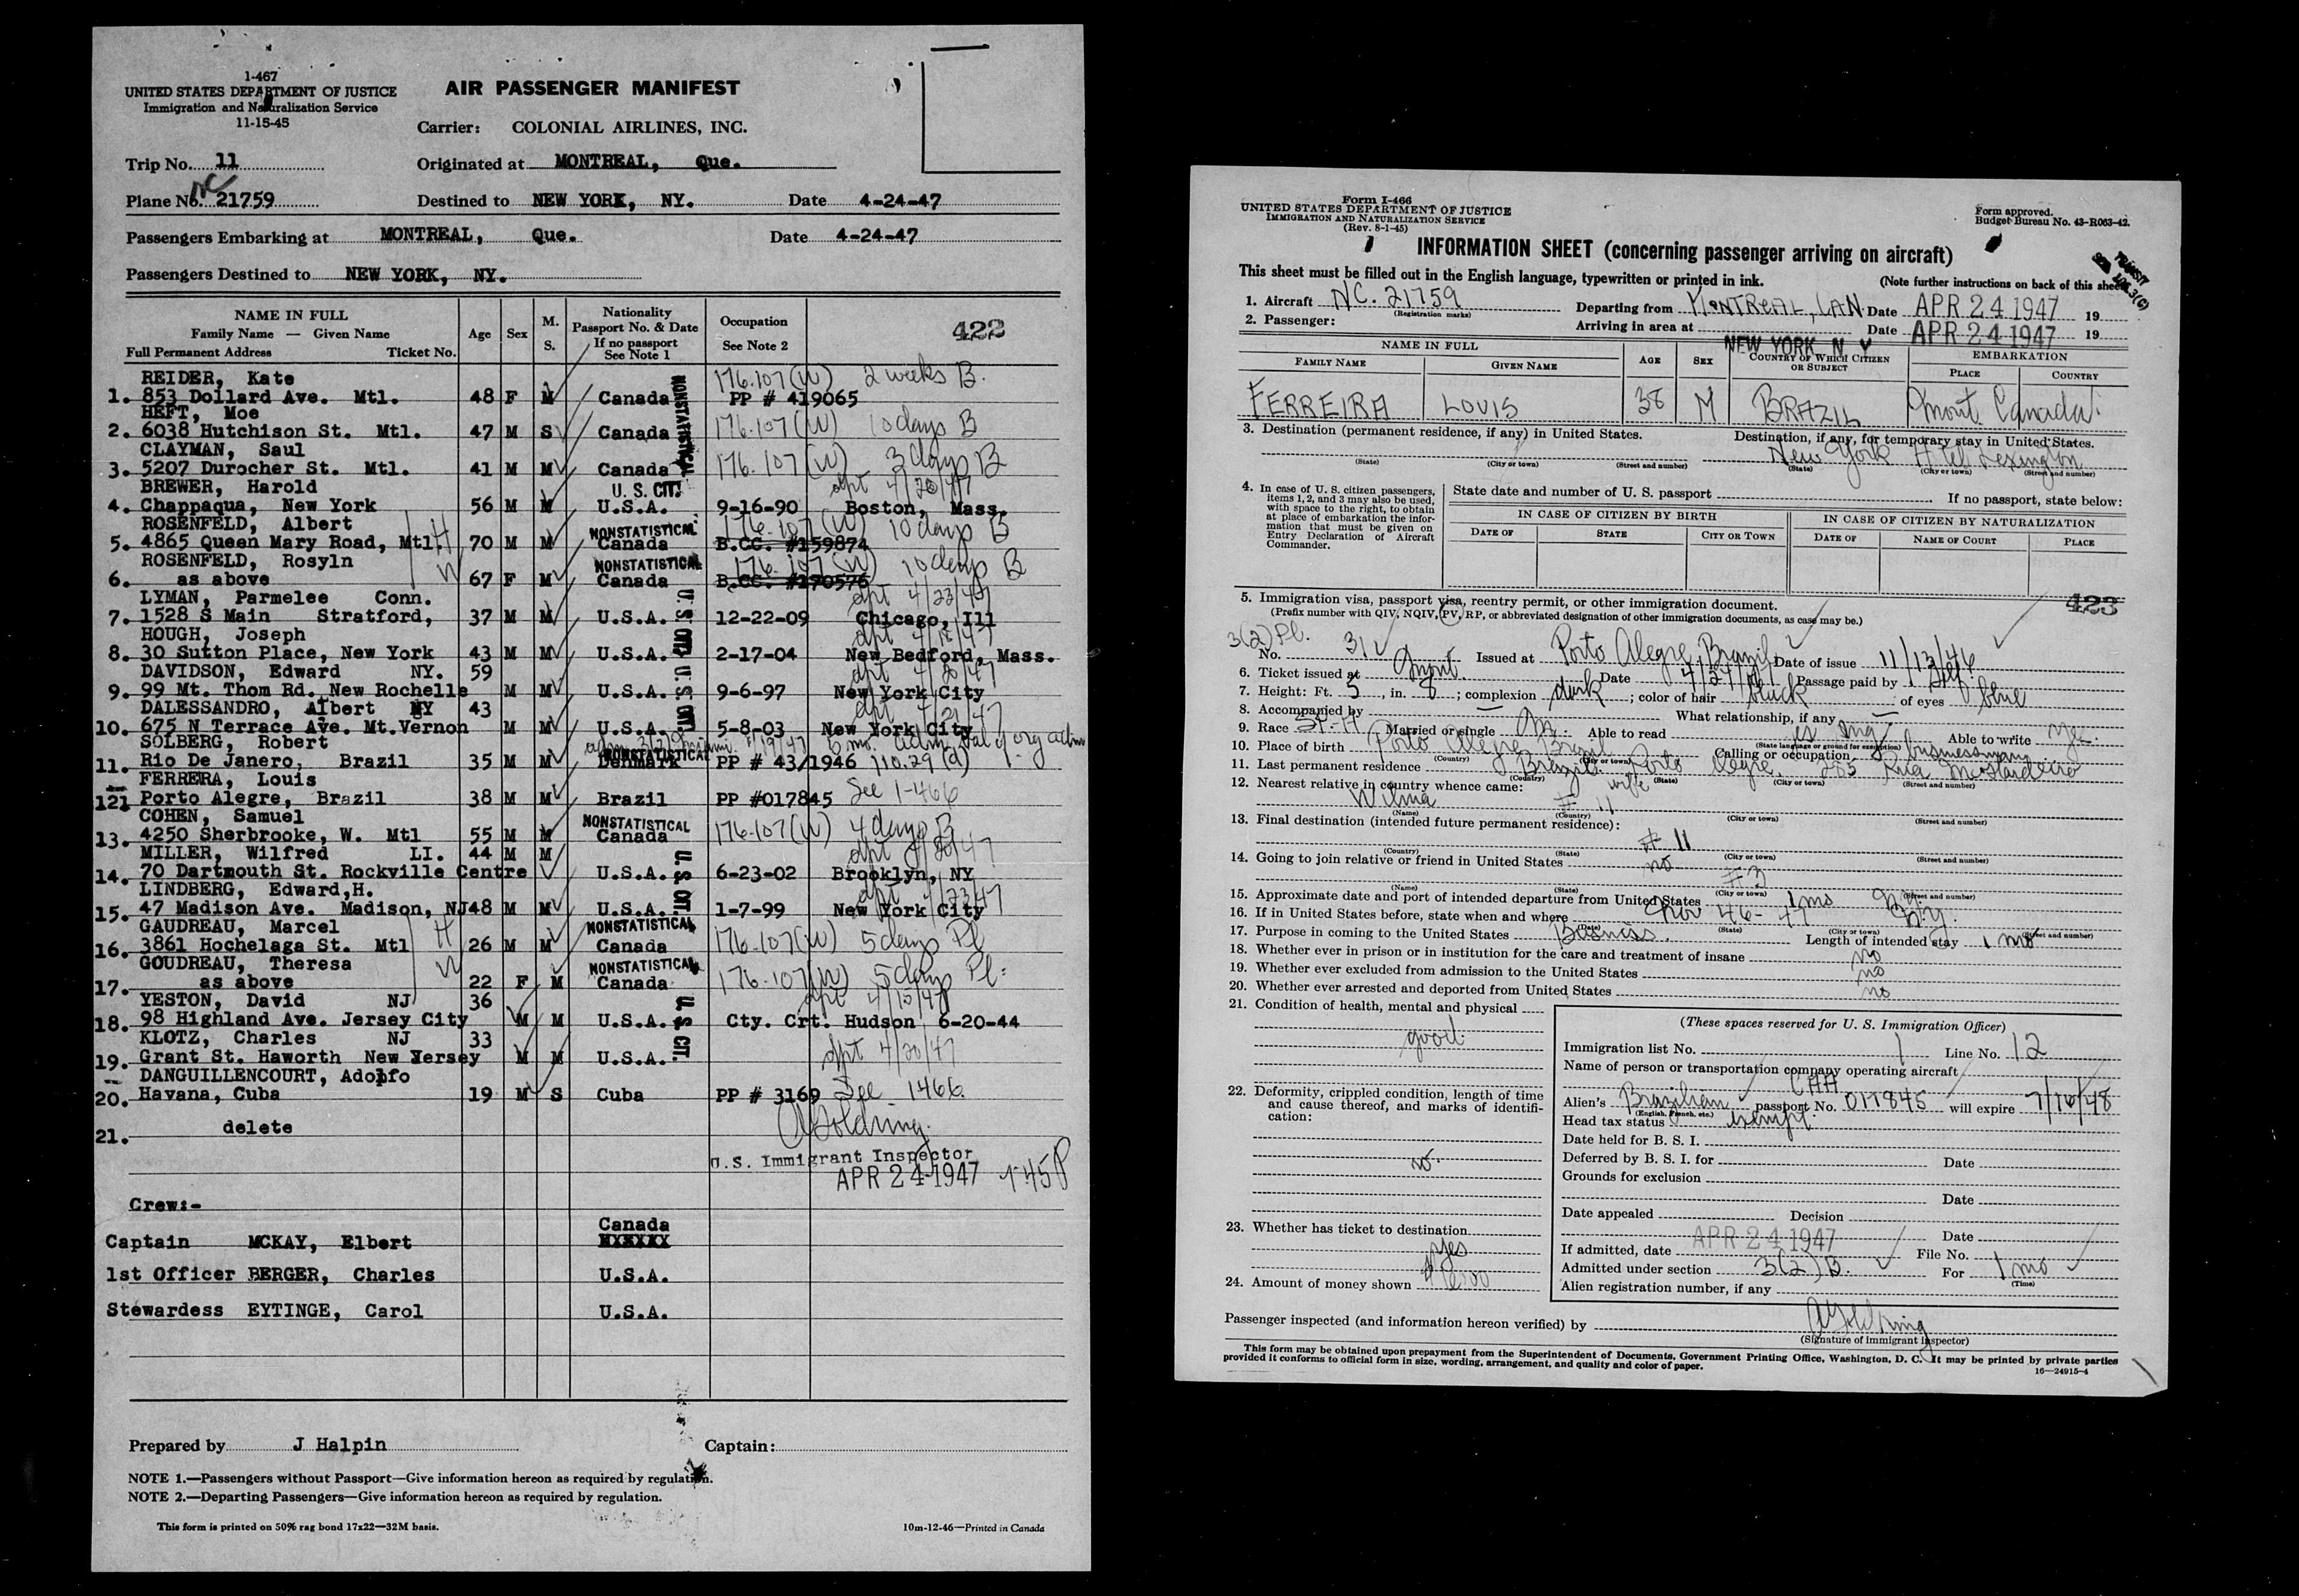 1-467
UNITED STATES DEPARTMENT OF JUSTICE
Immigration and Naturalization Service
11-15-45
AIR PASSENGER MANIFEST
Carrier: COLONIAL AIRLINES, INC.
Trip No. 11
Originated at MONTREAL, Que.
Plane No. NC 21759
Destined to NEW YORK, NY. Date 4-24-47
Passengers Embarking at MONTREAL, Que. Date 4-24-47
Passengers Destined to NEW YORK, NY.
NAME IN FULL
Family Name — Given Name
Full Permanent Address Ticket No.
Age Sex M. S.
Nationality
Passport No. & Date
If no passport
See Note 1
Occupation
See Note 2
422
REIDER, Kate 176.107(W) 2 weeks B.
1. 853 Dollard Ave. Mtl. 48 F M Canada NONSTATISTICAL PP # 419065
HEFT, Moe
2. 6038 Hutchison St. Mtl. 47 M S Canada NONSTATISTICAL 176.107(W) 10 days B
CLAYMAN, Saul
3. 5207 Durocher St. Mtl. 41 M M Canada 176.107(W) 3 days B
BREWER, Harold U. S. CIT.
4. Chappaqua, New York 56 M M U.S.A. 9-16-90 Boston, Mass.
ROSENFELD, Albert H NONSTATISTICAL 176.107(W) 10 days B
5. 4865 Queen Mary Road, Mtl. 70 M M Canada B.CC. #159874
ROSENFELD, Rosyln W NONSTATISTICAL 176.107(W) 10 days B
6. as above 67 F M Canada B.CC. #170576
LYMAN, Parmelee Conn. dpt 4/23/47
7. 1528 S Main Stratford, 37 M M U.S.A. U. S. CIT. 12-22-09 Chicago, Ill
HOUGH, Joseph
8. 30 Sutton Place, New York 43 M M U.S.A. 2-17-04 New Bedford, Mass.
DAVIDSON, Edward NY. 59 dpt 4/20/47
9. 99 Mt. Thom Rd. New Rochelle M M U.S.A. U. S. CIT. 9-6-97 New York City
DALESSANDRO, Albert NY 43 dpt 4/21/47
10. 675 N Terrace Ave. Mt.Vernon M M U.S.A. 5-8-03 New York City
SOLBERG, Robert NONSTATISTICAL
11. Rio De Janero, Brazil 35 M M Denmark PP # 43/1946 110.29(a)
FERRERA, Louis
12. Porto Alegre, Brazil 38 M M Brazil PP #017845 See I-466
COHEN, Samuel NONSTATISTICAL
13. 4250 Sherbrooke, W. Mtl 55 M M Canada 176.107(W) 4 days B
MILLER, Wilfred LI. 44 M M dpt 4/20/47
14. 70 Dartmouth St. Rockville Centre U.S.A. U. S. CIT. 6-23-02 Brooklyn, NY
LINDBERG, Edward,H. dpt 4/23/47
15. 47 Madison Ave. Madison, NJ 48 M M U.S.A. 1-7-99 New York City
GAUDREAU, Marcel H NONSTATISTICAL
16. 3861 Hochelaga St. Mtl 26 M M Canada 176.107(W) 5 days Pl
GOUDREAU, Theresa W NONSTATISTICAL
17. as above 22 F M Canada 176.107(W) 5 days Pl.
YESTON, David NJ 36
18. 98 Highland Ave. Jersey City M M U.S.A. U. S. CIT. Cty. Crt. Hudson 6-20-44
KLOTZ, Charles NJ 33
19. Grant St. Haworth New Yersey M M U.S.A. dpt 4/20/47
DANGUILLENCOURT, Adolfo
20. Havana, Cuba 19 M S Cuba PP # 3169 See I466
21. delete
U.S. Immigrant Inspector
APR 24 1947 1:45P
Crew:-
Captain MCKAY, Elbert Canada
1st Officer BERGER, Charles U.S.A.
Stewardess EYTINGE, Carol U.S.A.
Prepared by J Halpin Captain:
NOTE 1.—Passengers without Passport—Give information hereon as required by regulation.
NOTE 2.—Departing Passengers—Give information hereon as required by regulation.
This form is printed on 50% rag bond 17x22—32M basis. 10m-12-46—Printed in Canada
Form I-466
UNITED STATES DEPARTMENT OF JUSTICE
IMMIGRATION AND NATURALIZATION SERVICE
(Rev. 8-1-45)
Form approved.
Budget Bureau No. 43-R063-42.
INFORMATION SHEET (concerning passenger arriving on aircraft)
This sheet must be filled out in the English language, typewritten or printed in ink. (Note further instructions on back of this sheet)
TRANSIT
1. Aircraft NC. 21759 (Registration marks) Departing from MONTREAL, CAN. Date APR 24 1947 19
2. Passenger: Arriving in area at NEW YORK, N. Y. Date APR 24 1947 19
NAME IN FULL
FAMILY NAME GIVEN NAME AGE SEX COUNTRY OF WHICH CITIZEN OR SUBJECT EMBARKATION PLACE COUNTRY
FERREIRA LOUIS 38 M BRAZIL Mont Canada
3. Destination (permanent residence, if any) in United States. Destination, if any, for temporary stay in United States.
New York Hotel Lexington
(State) (City or town) (Street and number) (State) (City or town) (Street and number)
4. In case of U. S. citizen passengers, items 1, 2, and 3 may also be used, with space to the right, to obtain at place of embarkation the information that must be given on Entry Declaration of Aircraft Commander.
State date and number of U. S. passport If no passport, state below:
IN CASE OF CITIZEN BY BIRTH IN CASE OF CITIZEN BY NATURALIZATION
DATE OF STATE CITY OR TOWN DATE OF NAME OF COURT PLACE
5. Immigration visa, passport visa, reentry permit, or other immigration document. 423
(Prefix number with QIV, NQIV, PV, RP, or abbreviated designation of other immigration documents, as case may be.)
3(2) Pl.
No. 31 Issued at Porto Alegre, Brazil Date of issue 11/13/46
6. Ticket issued at Date Passage paid by Self
7. Height: Ft. 5, in. 8; complexion dark; color of hair black of eyes blue
8. Accompanied by — What relationship, if any —
9. Race Married or single M. Able to read yes Eng Able to write yes.
(State language or ground for exemption)
10. Place of birth Porto Alegre Brazil Calling or occupation businessman
(Country) (City or town) (State)
11. Last permanent residence Brazil Porto Alegre, 285 Rua
(Country) (State) (City or town) (Street and number)
12. Nearest relative in country whence came: wife
Wilma # 11
(Name) (Country) (City or town) (Street and number)
13. Final destination (intended future permanent residence):
# 11
(Country) (State) (City or town) (Street and number)
14. Going to join relative or friend in United States no
#3
(Name) (State) (City or town) (Street and number)
15. Approximate date and port of intended departure from United States 1 mo N.Y.
16. If in United States before, state when and where Nov 46-47 N.Y.
(Date) (State) (City or town) (Street and number)
17. Purpose in coming to the United States Business. Length of intended stay 1 mo
18. Whether ever in prison or in institution for the care and treatment of insane no
19. Whether ever excluded from admission to the United States no
20. Whether ever arrested and deported from United States no
21. Condition of health, mental and physical
good
22. Deformity, crippled condition, length of time and cause thereof, and marks of identification:
no.
23. Whether has ticket to destination
yes
24. Amount of money shown
(These spaces reserved for U. S. Immigration Officer)
Immigration list No. 1 Line No. 12
Name of person or transportation company operating aircraft
CAA
Alien's Brazilian passport No. 017845 will expire 7/16/48
(English, French, etc.)
Head tax status exempt
Date held for B. S. I.
Deferred by B. S. I. for Date
Grounds for exclusion
Date
Date appealed Decision
Date
If admitted, date APR 24 1947 File No.
Admitted under section 3(2)B. For 1 mo
(Time)
Alien registration number, if any
Passenger inspected (and information hereon verified) by
(Signature of immigrant inspector)
This form may be obtained upon prepayment from the Superintendent of Documents, Government Printing Office, Washington, D. C. It may be printed by private parties
provided it conforms to official form in size, wording, arrangement, and quality and color of paper.
16—24915-4